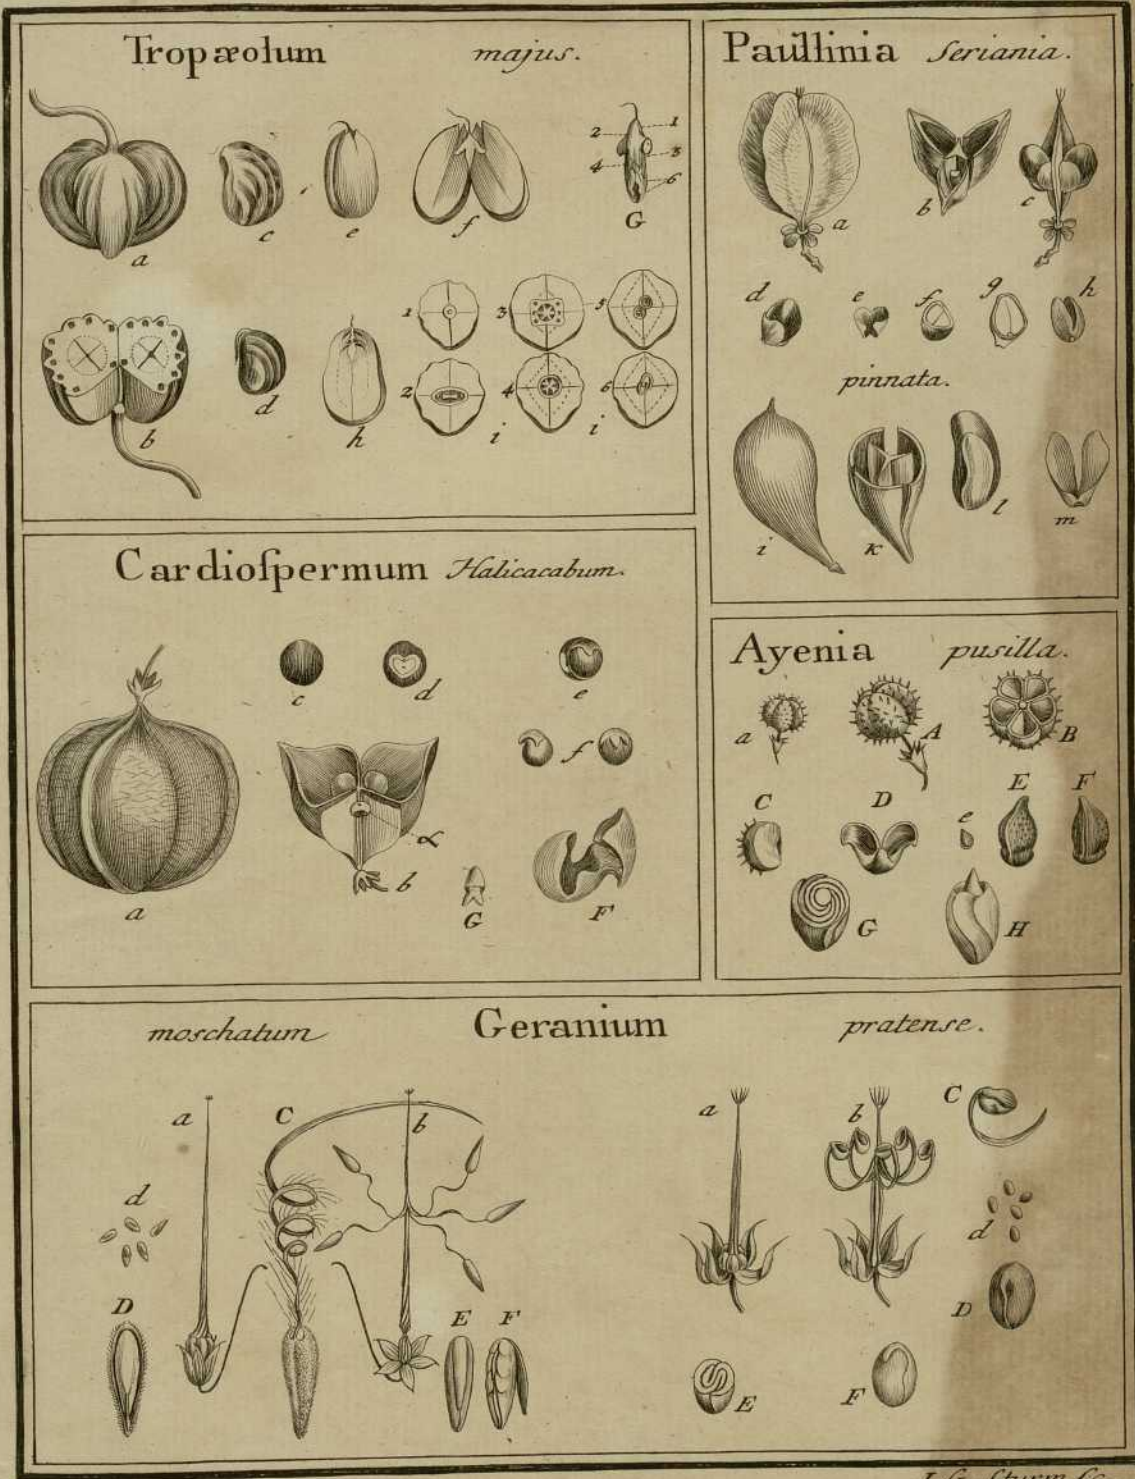 Tropæolum majus.
a c e f
1 2 3 4 6
G
b d h
1 3 5
2 4 6
i i
Paullinia Seriania.
a b c
d e f g h
pinnata.
i k l m
Cardioſpermum Halicacabum.
c d e
f
α
a b G F
Ayenia pusilla.
a A B
C D e E F
G H
moschatum Geranium pratense.
a C b
d
D E F
a b C
d
D
E F